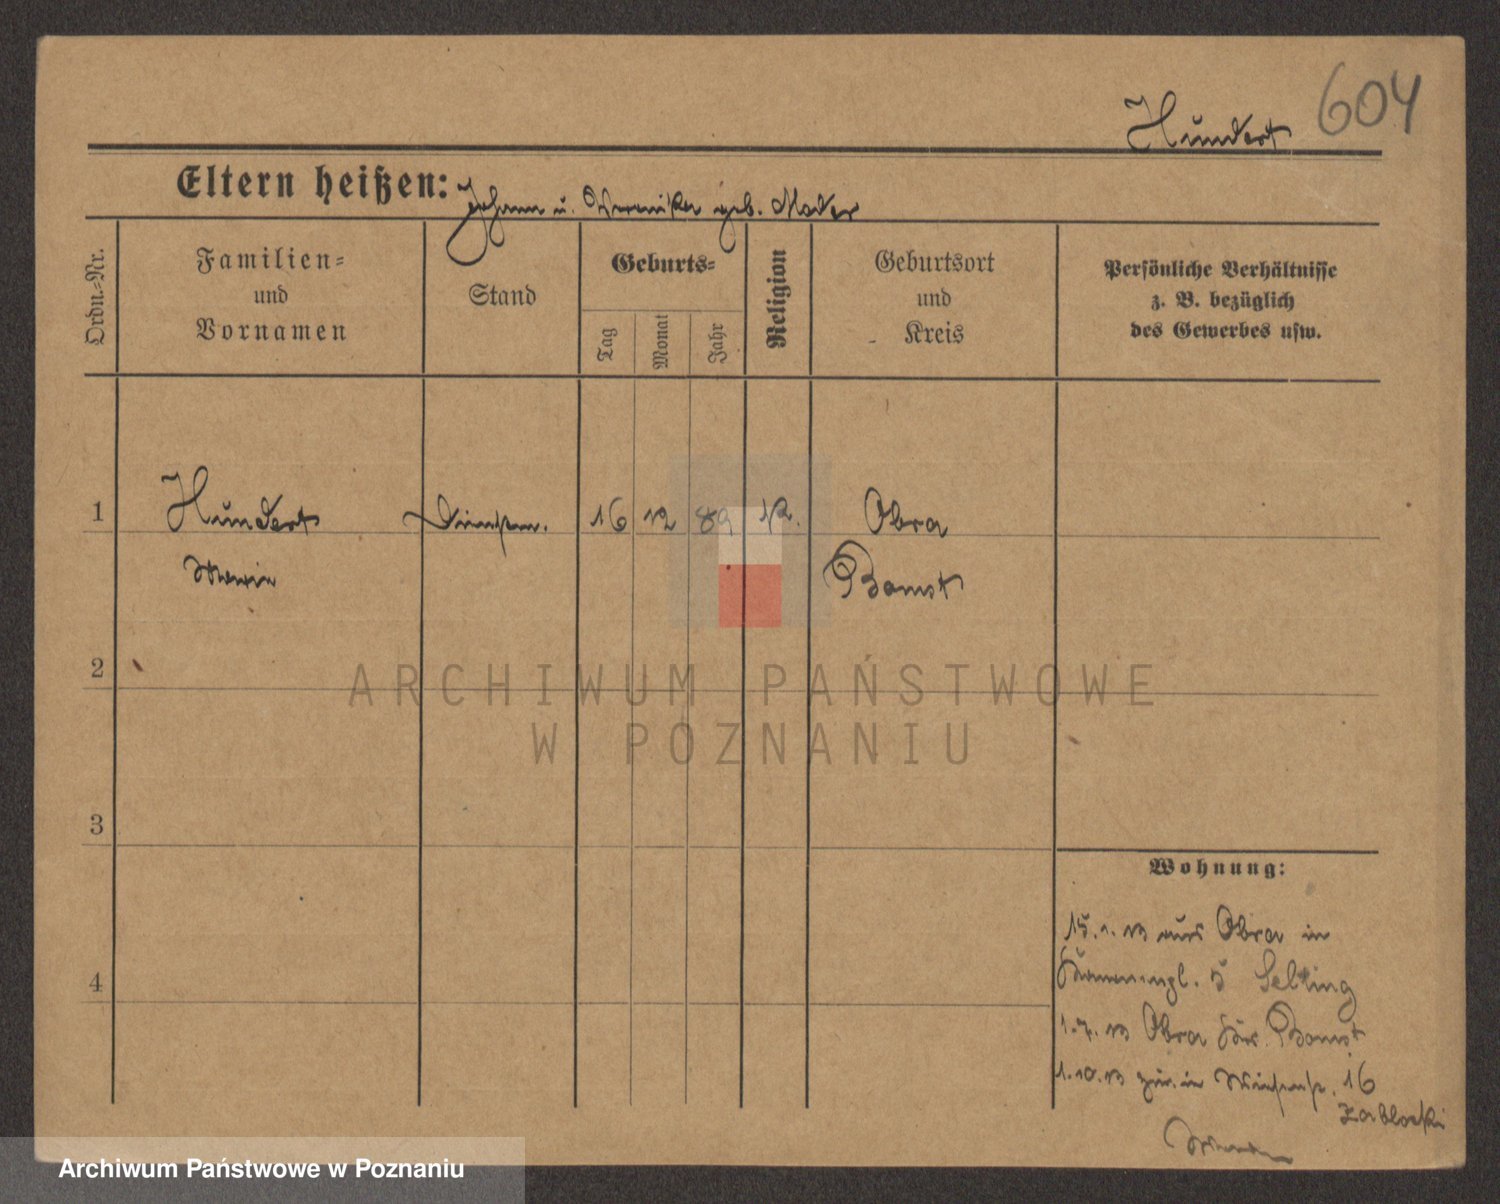 604
Hundert
Eltern heißen: Johann u. Veronika geb. Mader
Ordn.-Nr.
Familien-
und
Vornamen
Stand
Geburts-
Tag
Monat
Jahr
Religion
Geburtsort
und
Kreis
Persönliche Verhältnisse
z. B. bezüglich
des Gewerbes usw.
1 Hundert 16 12 89 K. Obra
Maria Bomst
2
3
4
Wohnung:
15.1.13 aus Obra in
5 Selting
1.7.13 Obra Krs. Bomst
1.10.13 zur. in 16
Zablocki
ARCHIWUM PAŃSTWOWE
W POZNANIU
Archiwum Państwowe w Poznaniu